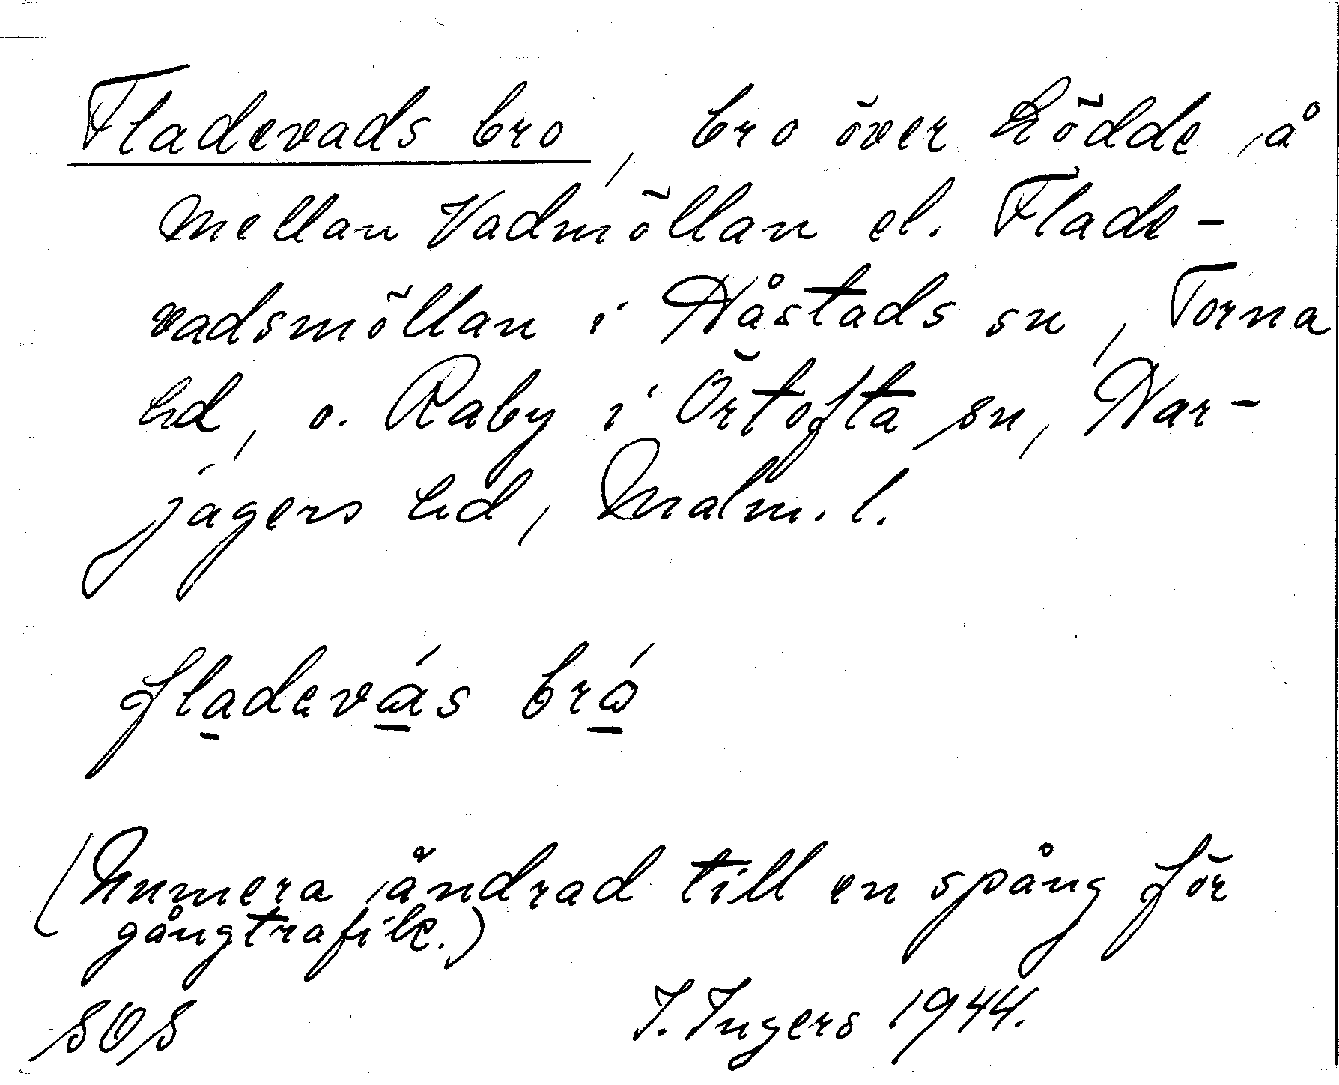 Fladevads bro, bro över Lödde å
mellan Vadmöllan el. Flade-
vadsmöllan i Håstads sn, Torna
hd, o. Råby i Örtofta sn, Har-
jagers hd, Malm. l.
fladevás bró
(Numera ändrad till en spång för
gångtrafik.)
SOS I. Ingers 1944.